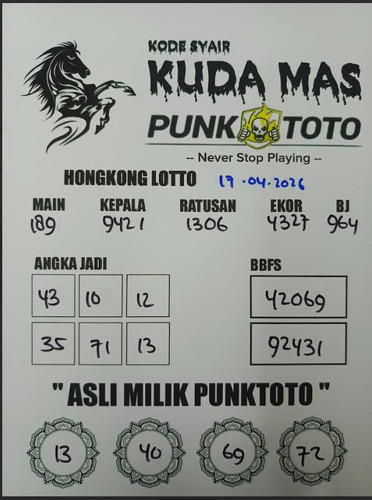 KODE SYAIR
KUDA MAS
PUNK TOTO
-- Never Stop Playing --
HONGKONG LOTTO 17-04-2026
MAIN KEPALA RATUSAN EKOR BJ
189 9421 1306 4327 964
ANGKA JADI BBFS
43 10 12 42069
35 71 13 92431
" ASLI MILIK PUNKTOTO "
13 40 69 72